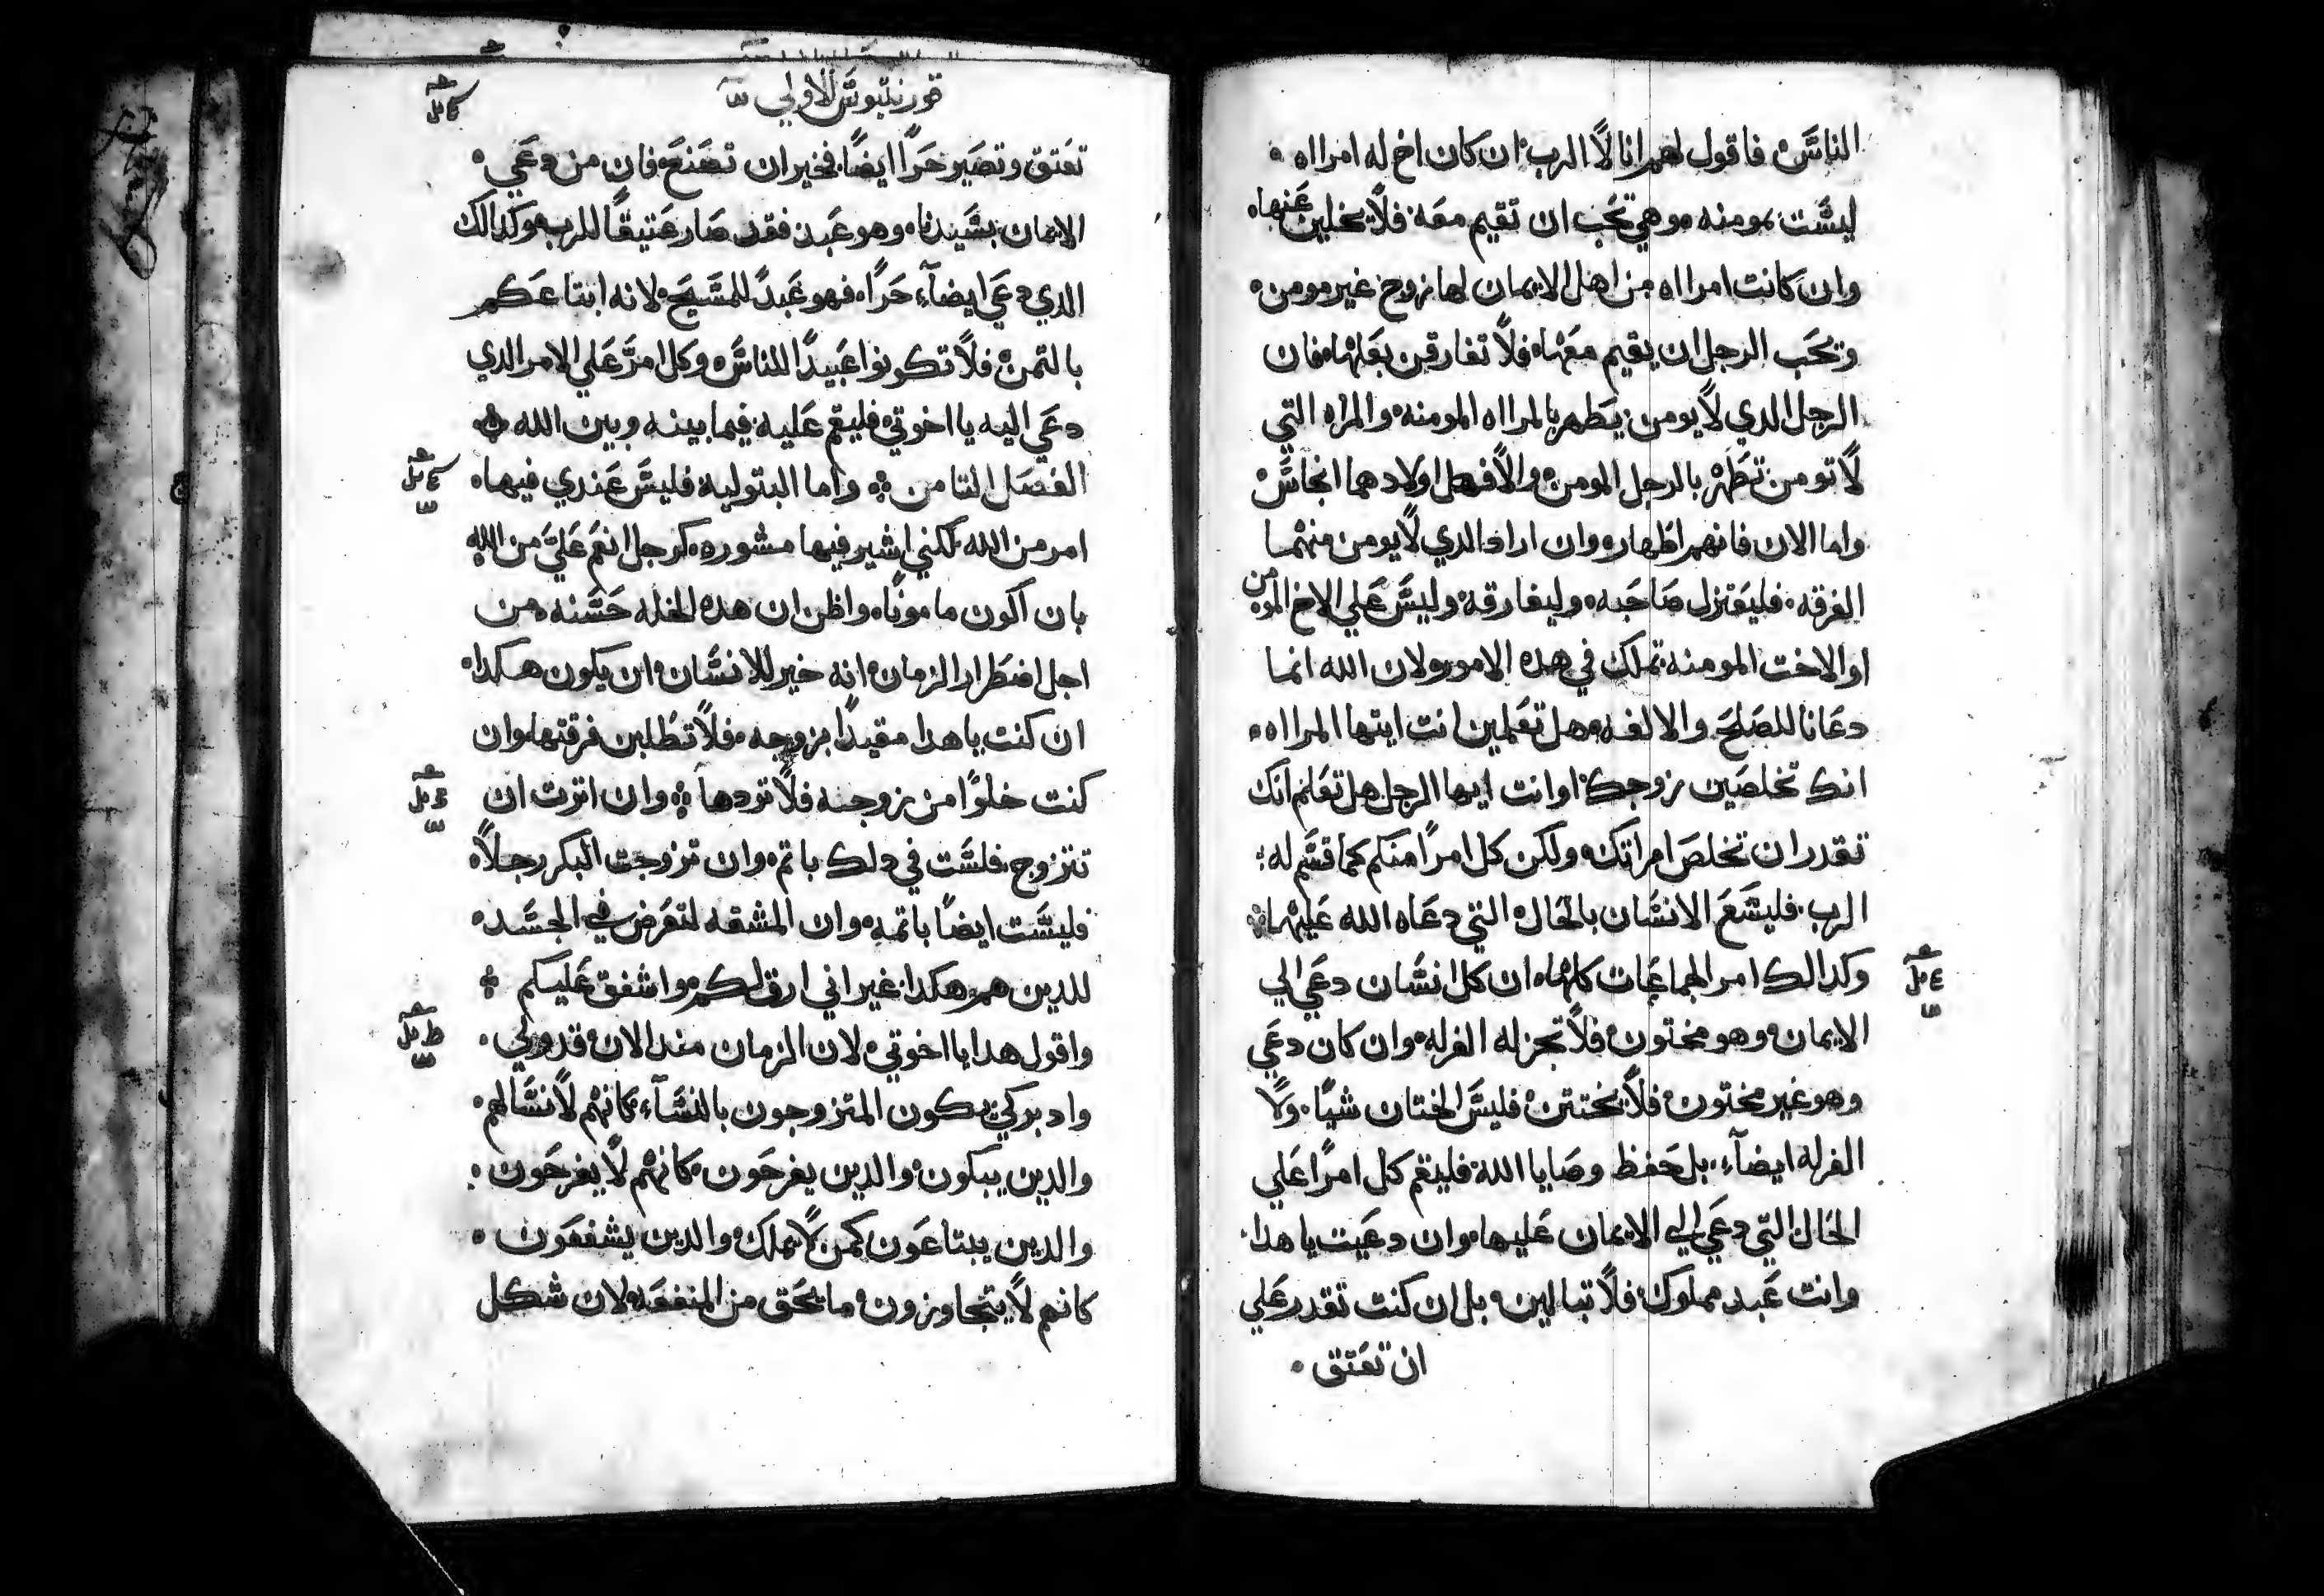 الناس فاقول لهم انا لا الرب ان كان اخ له امراه
ليست بمومنه وهي تحب ان تقيم معه فلا يخلين عنها
وان كانت امراه من اهل الايمان لها زوج غير مومن
وتحب الرجل ان يقيم معها فلا تفارقن بعلها فان
الرجل الدي لا يومن يتطهر بالمراه المومنه والمراه التي
لا تومن تطهر بالرجل المومن والا فهل اولادهما انجاس
واما الان فانهم اطهار وان اراد الدي لا يومن منهما
الفرقه فليعتزل صاحبه وليفارقه وليس علي الاخ المومن
او الاخت المومنه تملك في هده الامور ولان الله انما
دعانا للصلح والالفه وهل تعلمين انت ايتها المراه
انك تخلصين زوجك او انت ايها الرجل هل تعلم انك
تقدر ان تخلص امراتك ولكن كل امرا منكم كما قسم له
الرب فليسع الانسان بالحال التي دعاه الله عليها
وكدالك امر الجماعات كلها ان كل انسان دعي الي
الايمان وهو مختون فلا تجز له الغرله وان كان دعي
وهو غير مختون فلا يختتن فليس الختان شيا ولا
الغرله ايضآء بل حفظ وصايا الله فليقم كل امرا علي
الحال التي دعي الي الايمان عليها وان دعيت يا هدا
وانت عبد مملوك فلا تبالين بل ان كنت تقدر علي
ان تعتق
قورنتيوس الاولي
تعتق وتصير حرا ايضا فخير ان تصنع فان من دعي
الايمان بسيدنا وهو عبد فقد صار عتيقا للرب وكدالك
الدي دعي ايضآء حرا فهو عبد للمسيح لانه ابتاعكم
بالتمن فلا تكونوا عبيدا للناس وكل امر علي الامر الدي
دعي اليه يا اخوتي فليقم عليه فيما بينه وبين الله
الفصل التامن واما البتوليه فليس عندي فيها
امر من الله لكني اشير فيها مشوره كرجل انعم علي من الله
بان اكون مامونا واظن ان هده الخله حسنه من
اجل اضطرار الزمان انه خير للانسان ان يكون هكدا
ان كنت يا هدا مقيدا بزوجه فلا تطلبن فرقتها وان
كنت خلوا من زوجه فلا تردها وان اترت ان
تتزوج فلست في دلك باتم وان تزوجت البكر رجلا
فليست ايضا باتمه وان المشقه لتعرض في الجسد
للدين هم هكدا غير اني ارق لكم واشفق عليكم
واقول هدا يا اخوتي لان الزمان مند الان قد ولي
وادبر كي يكون المتزوجون بالنسآء كانهم لا نسا لهم
والدين يبكون والدين يفرحون كانهم لا يفرحون
والدين يبتاعون كمن لا يملك والدين يشفعون
كانهم لا يتجاوزون ما يحق من المنفعه لان شكل